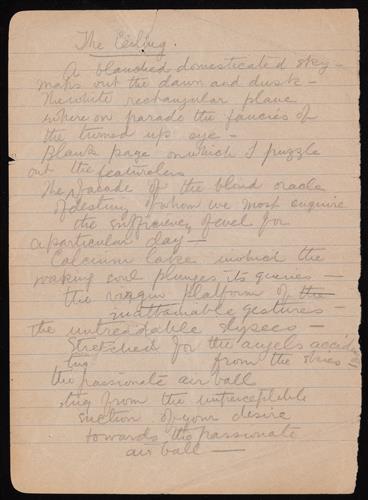 The Ceiling.
A blanched domesticated sky —
maps out the dawn and dusk —
The white rectangular plane
where on parade the fancies of
the turned up eye —
Blank page on which I puzzle
out the featureless
The facade of the blind oracle
of destiny of whom we most enquire
the sufficiency of evil for
a particular day —
Calcium lake in which the
waking soul plunges its queries —
the virgin platform of the
unattainable gestures —
the untreadable
Stretched for the angels
from the skies —
the passionate air ball
ting from the
suction of your desire
towards the passionate
air ball —